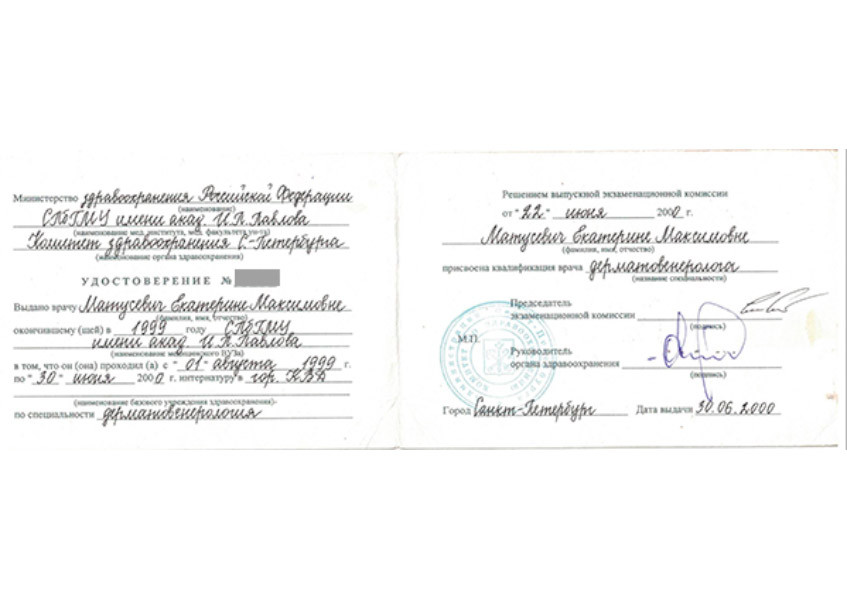 Министерство здравоохранения Российской Федерации
(наименование)
СПбГМУ имени акад. И.П. Павлова
(наименование мед. института, мед. факультета ун-та)
Комитет здравоохранения С-Петербурга
(наименование органа здравоохранения)
УДОСТОВЕРЕНИЕ №
Выдано врачу Матусевич Екатерине Максимовне
(фамилия, имя, отчество)
окончившему (шей) в 1999 году СПбГМУ
имени акад. И.П. Павлова
(наименование медицинского ВУЗа)
в том, что он (она) проходил (а) с "01" августа 1999 г.
по "30" июня 2000 г. интернатуру в гор. КВД
(наименование базового учреждения здравоохранения)
по специальности дерматовенерология
Решением выпускной экзаменационной комиссии
от "22" июня 2000 г.
Матусевич Екатерине Максимовне
(фамилия, имя, отчество)
присвоена квалификация врача дерматовенеролога
(название специальности)
Председатель
экзаменационной комиссии
(подпись)
М.П.
Руководитель
органа здравоохранения
(подпись)
Город Санкт-Петербург Дата выдачи 30.06.2000